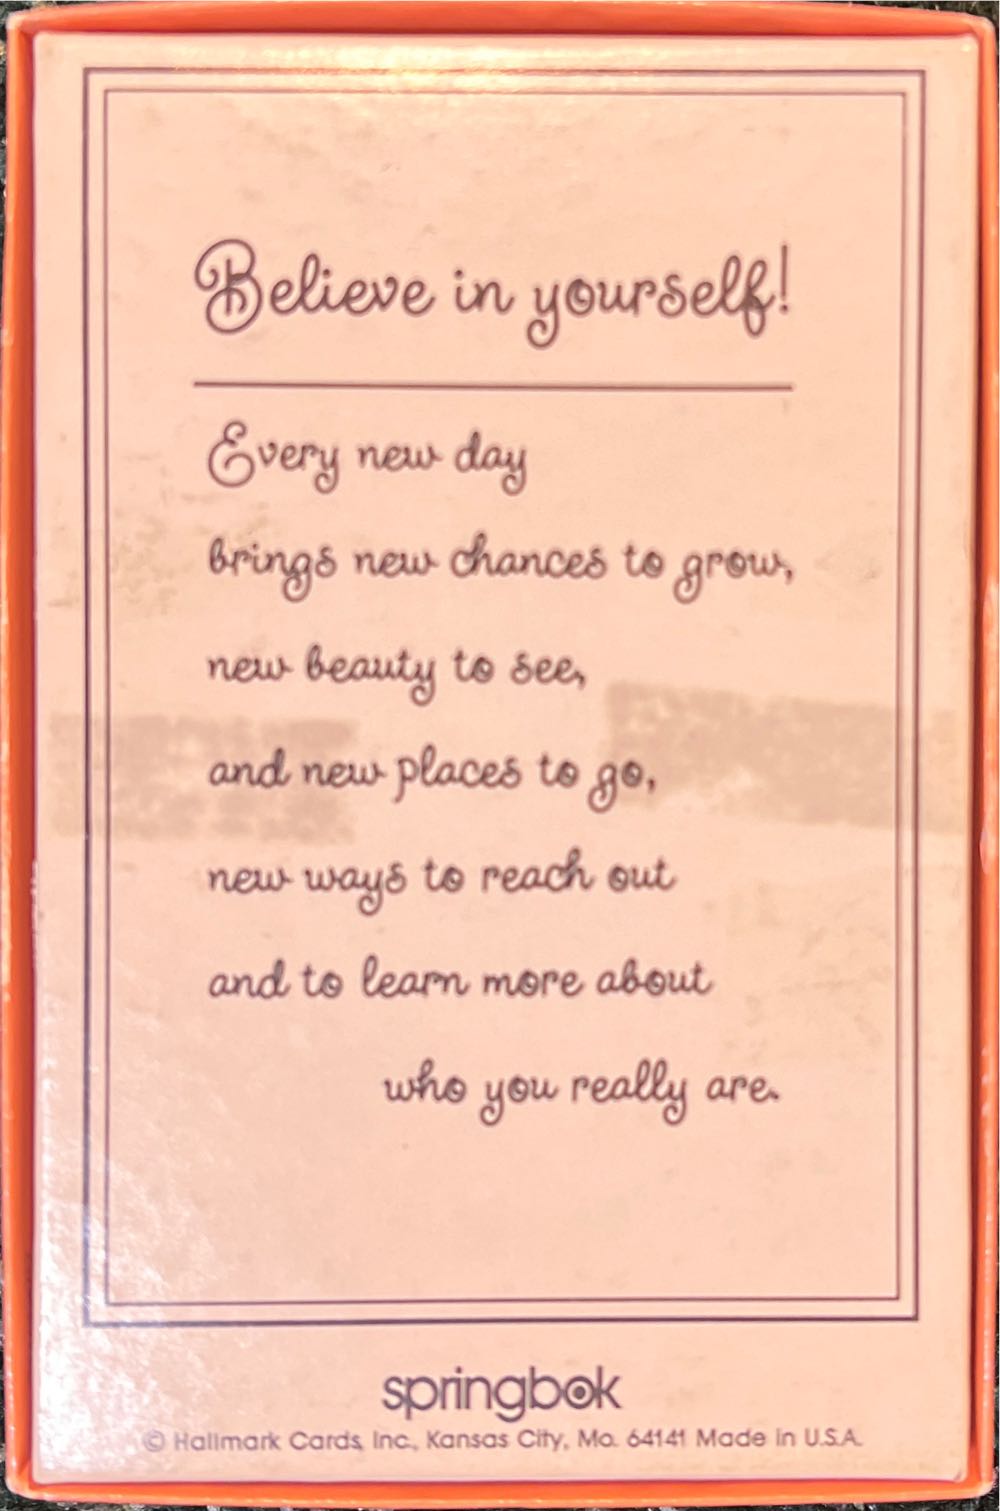 Believe in yourself!
Every new day
brings new chances to grow,
new beauty to see,
and new places to go,
new ways to reach out
and to learn more about
who you really are.
springbok
© Hallmark Cards, Inc., Kansas City, Mo. 64141 Made in U.S.A.